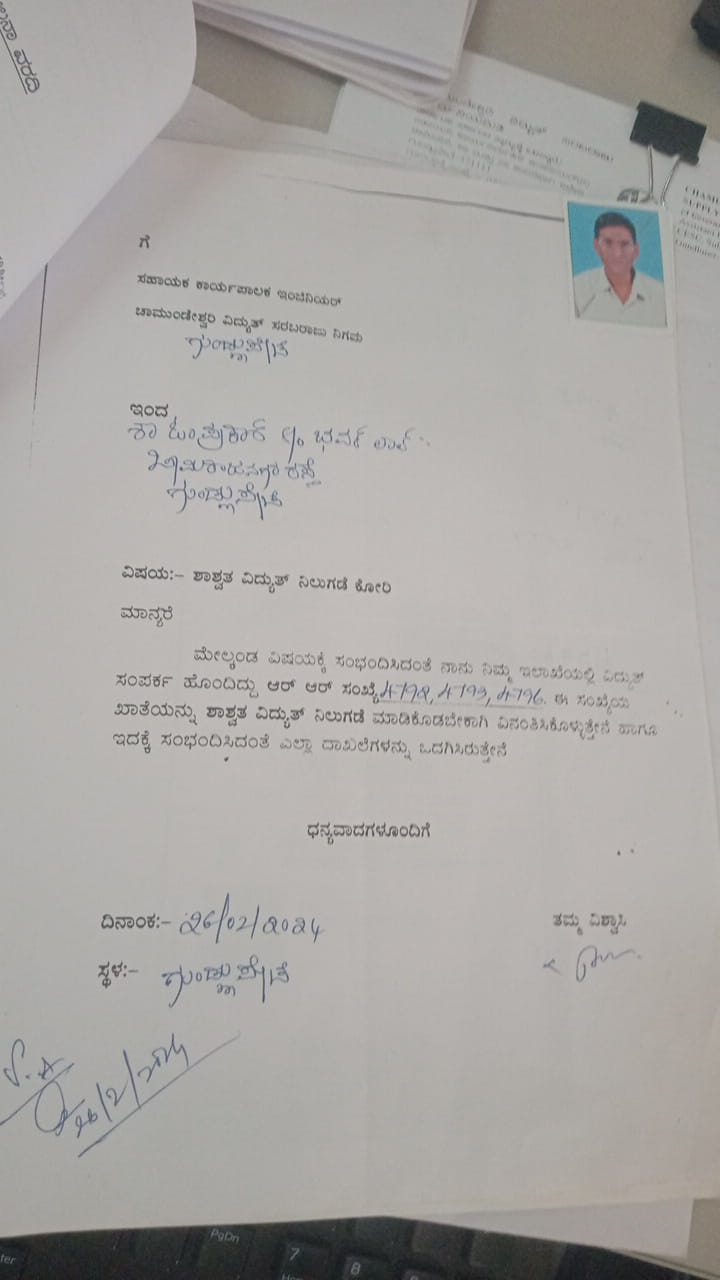 ನಾ ವರದಿ
ಗೆ
ಸಹಾಯಕ ಕಾರ್ಯಪಾಲಕ ಇಂಜಿನಿಯರ್
ಚಾಮುಂಡೇಶ್ವರಿ ವಿದ್ಯುತ್ ಸರಬರಾಜು ನಿಗಮ
ಗುಂಡ್ಲುಪೇಟೆ
ಇಂದ
ಶಾ ಓಂಪ್ರಕಾಶ್ S/o ಭವರ್ ಲಾಲ್
ಚಾಮರಾಜನಗರ ರಸ್ತೆ
ಗುಂಡ್ಲುಪೇಟೆ
ವಿಷಯ:- ಶಾಶ್ವತ ವಿದ್ಯುತ್ ನಿಲುಗಡೆ ಕೋರಿ
ಮಾನ್ಯರೆ
ಮೇಲ್ಕಂಡ ವಿಷಯಕ್ಕೆ ಸಂಭಂದಿಸಿದಂತೆ ನಾನು ನಿಮ್ಮ ಇಲಾಖೆಯಲ್ಲಿ ವಿದ್ಯುತ್
ಸಂಪರ್ಕ ಹೊಂದಿದ್ದು ಆರ್ ಆರ್ ಸಂಖ್ಯೆ 4798, 4793, 4796. ಈ ಸಂಖ್ಯೆಯ
ಖಾತೆಯನ್ನು ಶಾಶ್ವತ ವಿದ್ಯುತ್ ನಿಲುಗಡೆ ಮಾಡಿಕೊಡಬೇಕಾಗಿ ವಿನಂತಿಸಿಕೊಳ್ಳುತ್ತೇನೆ ಹಾಗೂ
ಇದಕ್ಕೆ ಸಂಭಂದಿಸಿದಂತೆ ಎಲ್ಲಾ ದಾಖಲೆಗಳನ್ನು ಒದಗಿಸಿರುತ್ತೇನೆ
ಧನ್ಯವಾದಗಳೊಂದಿಗೆ
ದಿನಾಂಕ:- 26/02/2024
ತಮ್ಮ ವಿಶ್ವಾಸಿ
ಸ್ಥಳ:- ಗುಂಡ್ಲುಪೇಟೆ
26/2/2024
PgDn
7
8